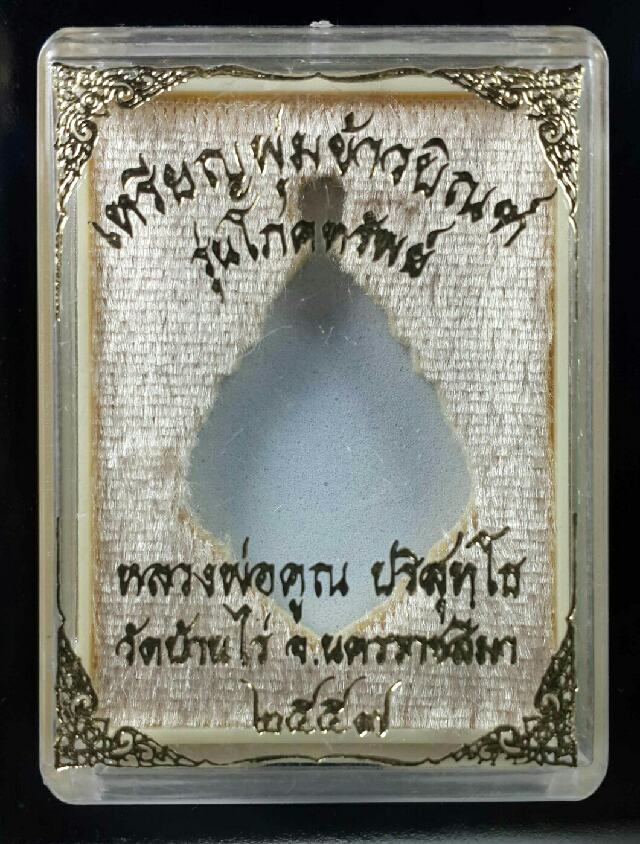 เหรียญพุ่มข้าวบิณฑ์
รุ่นโภคทรัพย์
หลวงพ่อคูณ ปริสุทฺโธ
วัดบ้านไร่ จ.นครราชสีมา
๒๕๕๗